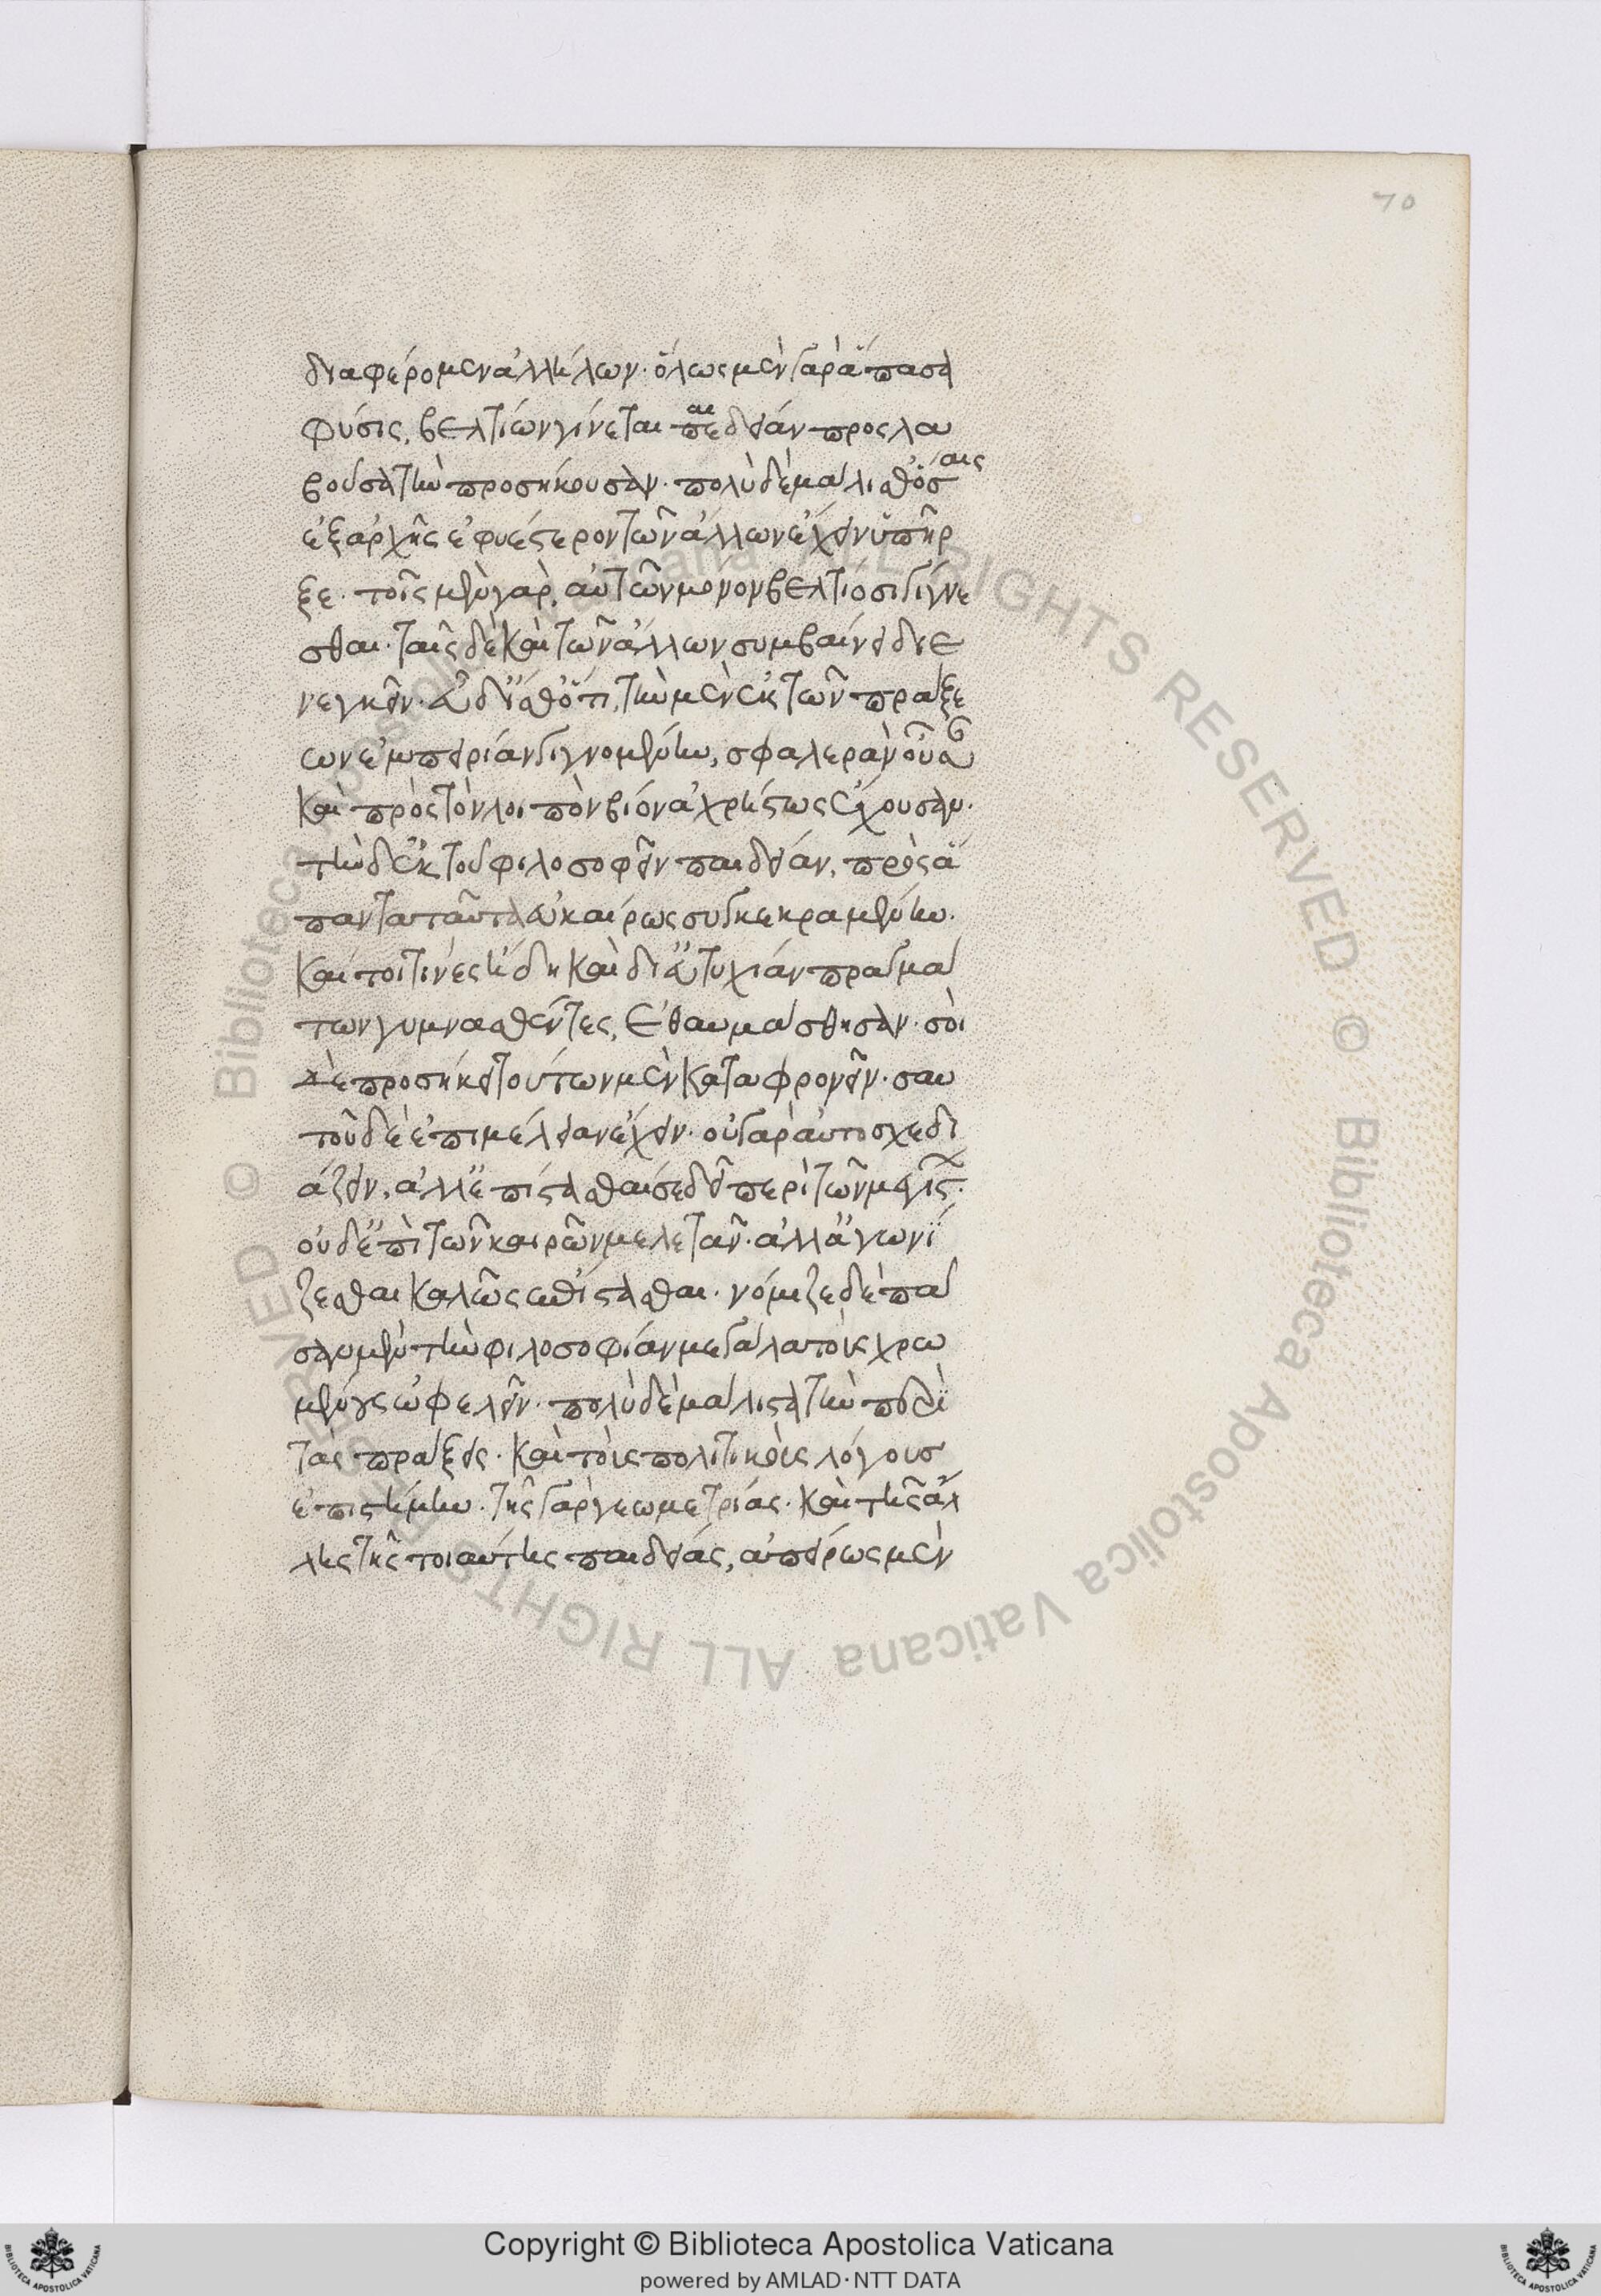 70
διαφέρομεν ἀλλήλων· ὅλως μὲν γὰρ ἅπασα
φύσις, βελτίων γίνεται παιδείαν προσλα
βοῦσα τὴν προσήκουσαν· πολὺ δὲ μάλισθ' ὅσαις
ἐξαρχῆς εὐφυέστερον τῶν ἄλλων ἔχειν ὑπῆρ
ξε· τοῖς μὲν γὰρ, αὑτῶν μόνον βελτίοσι γίγνε
σθαι· ταῖς δὲ καὶ τῶν ἄλλων συμβαίνει διε
νεγκεῖν· εὖ δ' ἴσθ' ὅτι, τὴν μὲν ἐκ τῶν πράξε
ων ἐμπειρίαν γιγνομένην, σφαλερὰν οὖσαν
καὶ πρὸς τὸν λοιπὸν βίον ἀχρήστως ἔχουσαν·
τὴν δ' ἐκ τοῦ φιλοσοφεῖν παιδείαν, πρὸς ἅ
παντα ταῦτα εὐκαίρως συγκεκραμένην.
καί τοι τινὲς ἤδη καὶ δι' εὐτυχίαν πραγμά
των γυμνασθέντες, ἐθαυμάσθησαν· σοὶ
δὲ προσήκει τούτων μὲν καταφρονεῖν· σαυ
τοῦ δὲ ἐπιμέλειαν ἔχειν· οὐ γὰρ αὐτοσχεδι
άζειν, ἀλλ' ἐπίστασθαί σε δεῖ περὶ τῶν μεγίστ·
οὐδ' ἐπὶ τῶν καιρῶν μελετᾶν· ἀλλ' ἀγωνί
ζεσθαι καλῶς ἐπίστασθαι· νόμιζε δὲ πᾶ
σαν μὲν τὴν φιλοσοφίαν μεγάλα τοὺς χρω
μένους ὠφελεῖν· πολὺ δὲ μάλιστα τὴν περὶ
τὰς πράξεις· καὶ τοὺς πολιτικοὺς λόγους
ἐπιστήμην· τῆς γὰρ γεωμετρίας· καὶ τῆς ἄλ
λης τῆς τοιαύτης παιδείας, ἀπείρως μὲν
Copyright © Biblioteca Apostolica Vaticana
powered by AMLAD·NTT DATA
© Biblioteca Apostolica Vaticana ALL RIGHTS RESERVED © Biblioteca Apostolica Vaticana ALL RIGHTS RESERVED